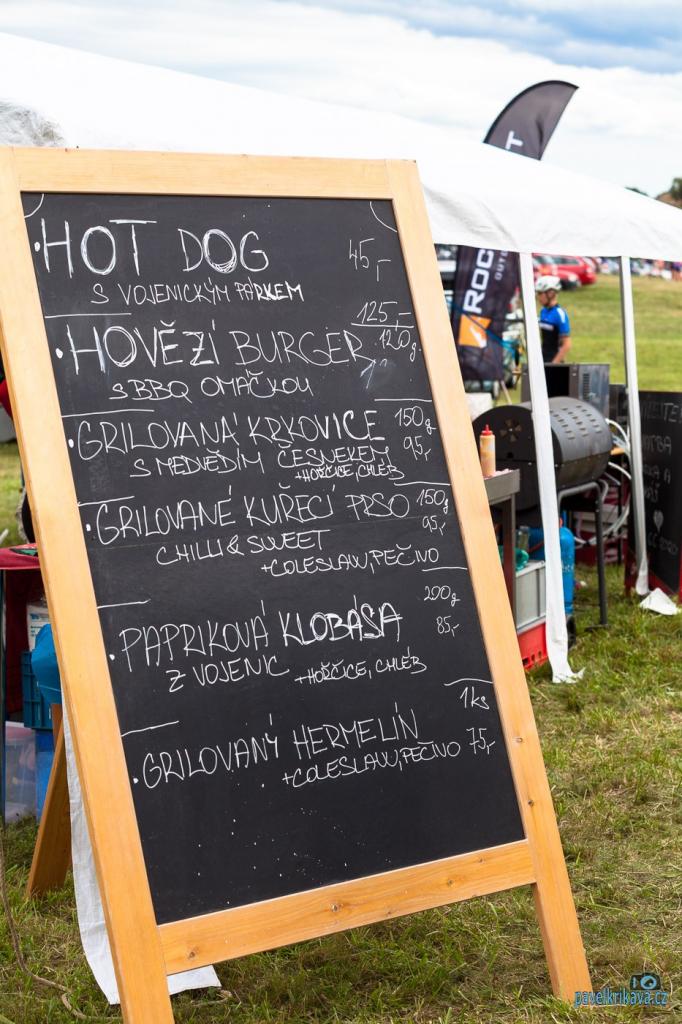 HOT DOG 45,-
S VOJENICKÝM PÁRKEM
125,-
HOVĚZÍ BURGER 120g
S BBQ OMÁČKOU
GRILOVANÁ KRKOVICE 150g
S MEDVĚDÍM ČESNEKEM 95,-
+HOŘČICE, CHLÉB
GRILOVANÉ KUŘECÍ PRSO 150g
CHILLI & SWEET 95,-
+COLESLAW, PEČIVO
200g
PAPRIKOVÁ KLOBÁSA 85,-
Z VOJENIC +HOŘČICE, CHLÉB
1ks
GRILOVANÝ HERMELÍN 75,-
+COLESLAW, PEČIVO
ROC
pavelkrikava.cz